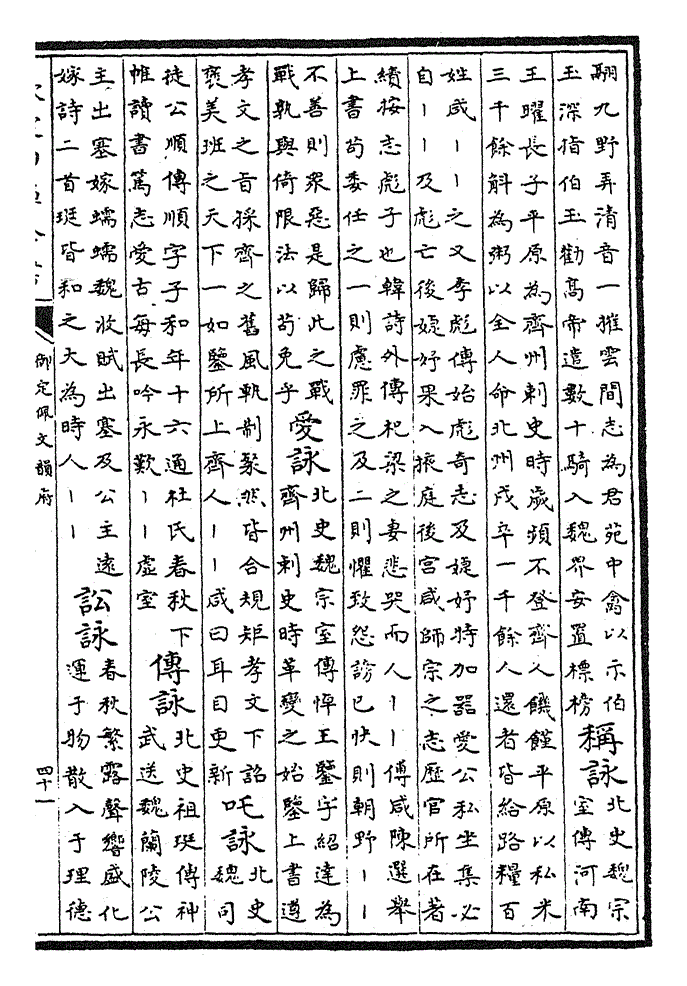 翮九野弄清音一摧雲間志為君苑中禽以示伯
玉深指伯玉勸高帝遣數十騎入魏界安置標榜
稱詠
北史魏宗
室傳河南
王曜長子平原為齊州刺史時歲頻不登齊人饑饉平原以私米
三千餘斛為粥以全人命北州戍卒一千餘人還者皆給路糧百
姓咸丨丨之又李彪傳始彪奇志及婕妤特加器愛公私坐集必
自丨丨及彪亡後婕妤果入掖庭後宮咸師宗之志歷官所在著
績按志彪子也韓詩外傳杞梁之妻悲哭而人丨丨傅咸陳選舉
上書苟委任之一則慮罪之及二則懼致怨謗已快則朝野丨丨
不善則衆惡是歸此之戰
戰孰與倚限法以苟免乎
愛詠
北史魏宗室傳悼王鑒字紹達為
齊州刺史時革變之始鑒上書遵
孝文之旨採齊之舊風軌制粲然皆合規矩孝文下詔
褒美班之天下一如鑒所上齊人丨丨咸曰耳目更新
吒詠
北史
魏司
徒公順傳順字子和年十六通杜氏春秋下
帷讀書篤志愛古每長吟永歎丨丨虛室
傳詠
北史祖珽傳神
武送魏蘭陵公
主出塞嫁蠕蠕魏收賦出塞及公主遠
嫁詩二首珽皆和之大為時人丨丨
訟詠
春秋繁露聲響盛化
運于物散入于理德
御定佩文韻府
四十一